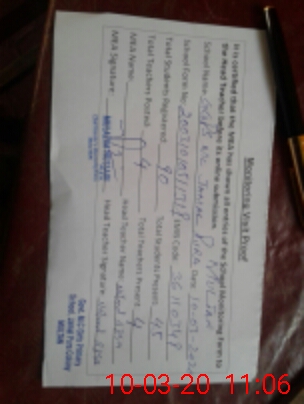 Monitoring Visit Proof
It is certified that the MEA has shown all entries of the School Monitoring Form to
the Head Teacher before its online submission.
School Name: GGPS N/C JAMAL PURA MULTAN
Date: 10-03-202
School Form No:
EMIS Code: 36110349
Total Students Registered: 90 Total Students Present: 45
Total Teachers Posted: 4 Total Teachers Present: 4
MEA Name: Head Teacher Name:
MEA Signature: Head Teacher Signature:
Govt. M/C Girls Primary
School Jamal Pura Colony
MULTAN
10-03-20 11:06